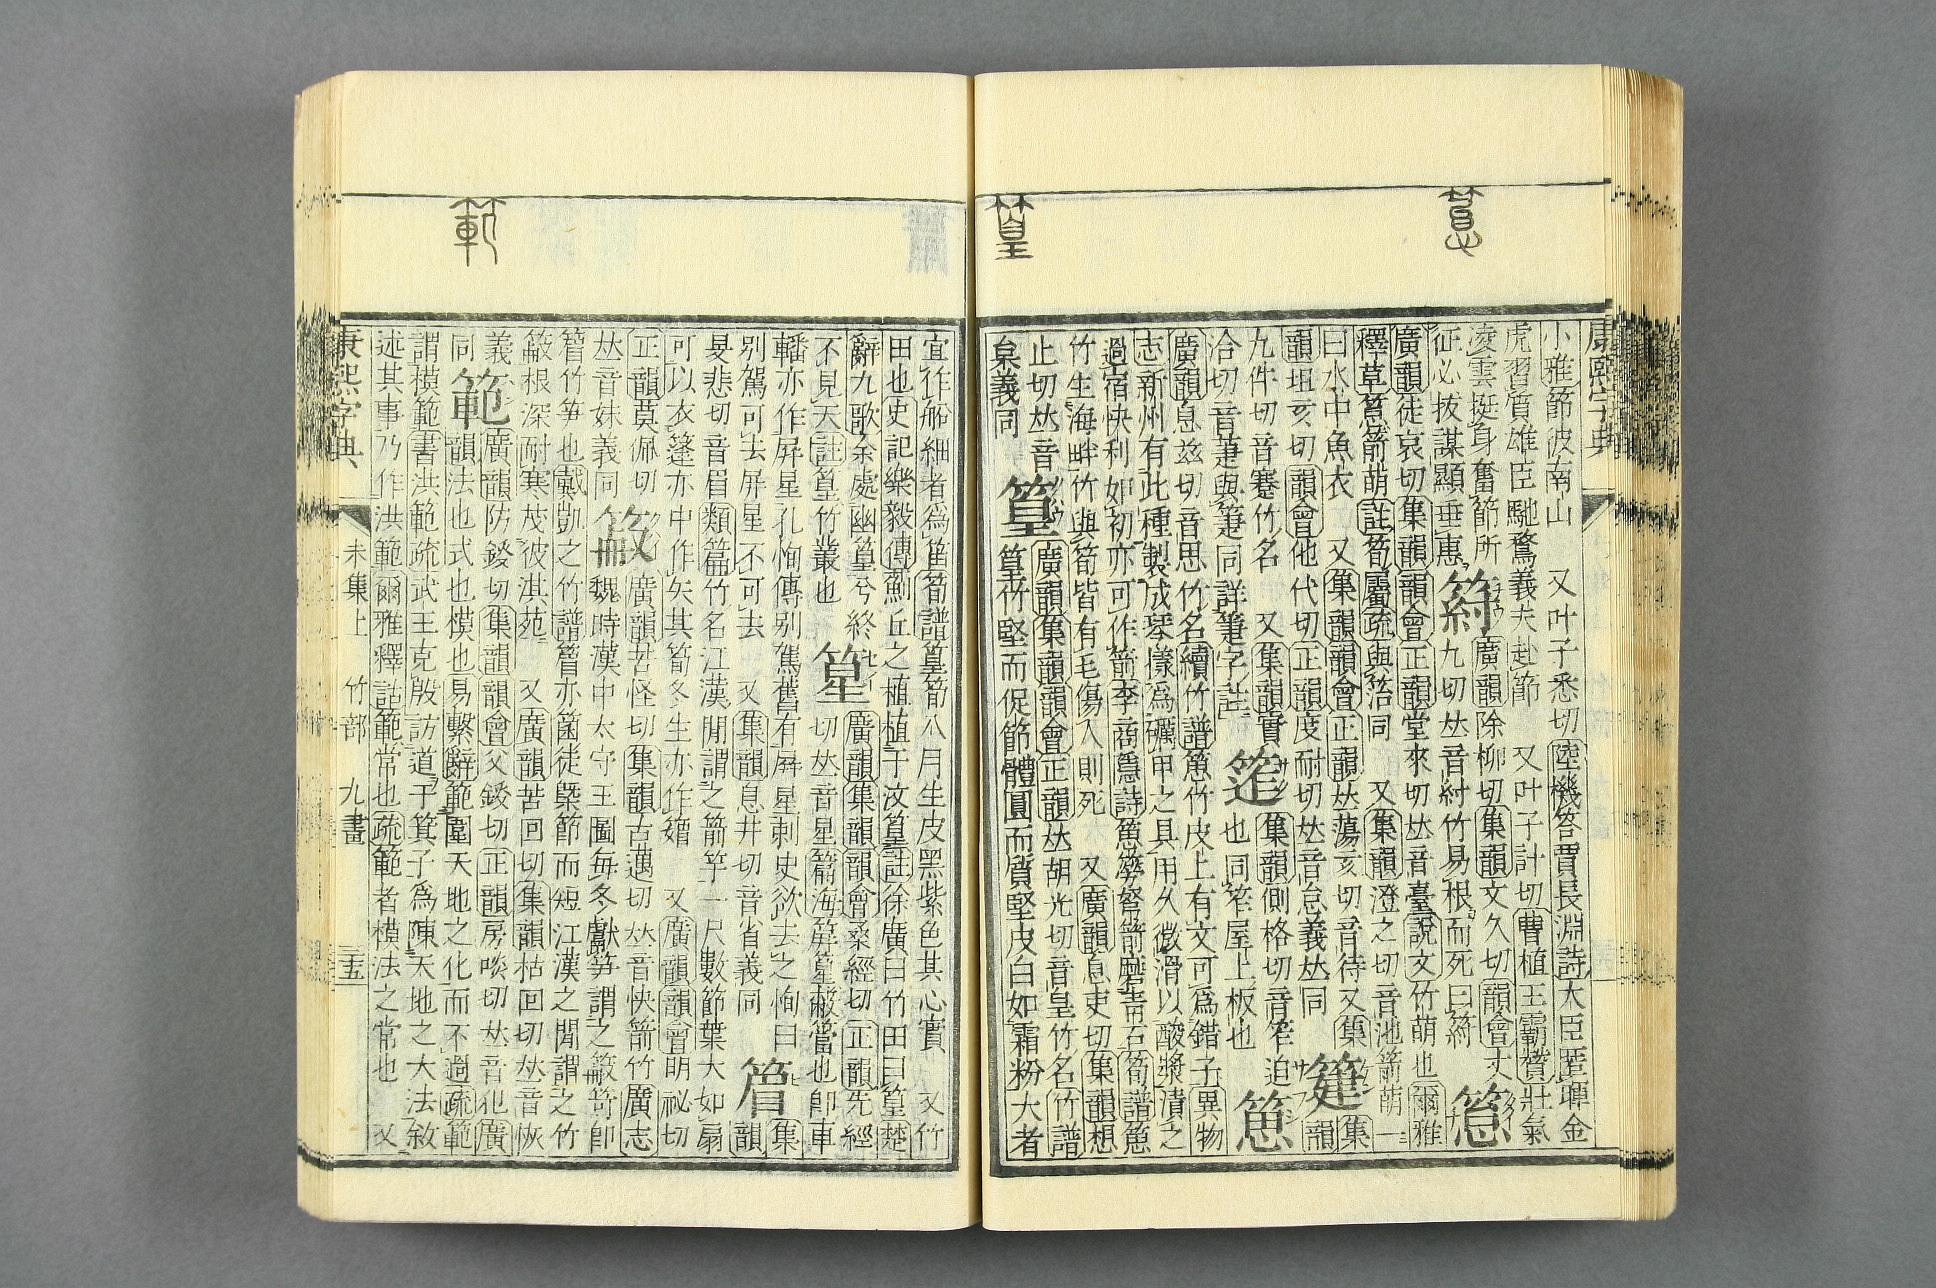 小雅節彼南山　又叶子悉切陸機答賈長淵詩大臣匪躍金
虎習質雄臣馳騖義夫赴節　又叶子計切曹植王霸贊壯氣
淩雲挺身奮節所
征必拔謀顯垂惠
廣韻除柳切集韻文久切韻會丈
九切𠀤音紂竹易根而死曰
䈚
廣韻徒哀切集韻韻會正韻堂來切𠀤音臺說文竹萌也爾雅
釋草䈚箭萌註筍屬疏與箈同　又集韻澄之切音池箭萌一
曰水中魚衣　又集韻韻會正韻𠀤蕩亥切音待又集
韻坦亥切韻會他代切正韻度耐切𠀤音怠義𠀤同
集韻
九件切音蹇竹名　又集韻實
洽切音萐與箑同詳箑字註
筰
集韻側格切音窄迫
也同笮屋上板也
廣韻息兹切音思竹名續竹譜竹皮上有文可爲錯子異物
志新州有此種製成琴㨾爲礪甲之具用久微滑以酸漿漬之
過宿快利如初亦可作箭李商隱詩勞弩箭磨青石筍譜
竹生海畔竹與筍皆有毛傷人則死　又廣韻息吏切集韻想
止切𠀤音
枲義同
篁
廣韻集韻韻會正韻𠀤胡光切音皇竹名竹譜
篁竹堅而促節體圓而質堅皮白如霜粉大者
宜作船細者爲笛筍譜篁筍八月生皮黑紫色其心實　又竹
田也史記樂毅傳薊丘之植植于汶篁註徐廣曰竹田曰篁楚
辭九歌余處幽篁兮終
不見天註篁竹叢也
篂
廣韻集韻韻會桑經切正韻先經
切𠀤音星篇海屏篂蔽簹也卽車
轓亦作屛星孔恂傳別駕舊有屛星刺史欲去之恂曰
別駕可去屛星不可去　又集韻息井切音省義同
䈿
集韻
旻悲切音眉類篇竹名江漢閒謂之箭竿一尺數節葉大如扇
可以衣篷亦中作矢其筍冬生亦作　又廣韻韻會明祕切
正韻莫佩切
𠀤音妹義同
廣韻苦怪切集韻古邁切𠀤音快箭竹廣志
魏時漢中太守王圖每冬獻筍謂之笴卽
竹筍也戴凱之竹譜亦菌徒槩節而短江漢之閒謂之竹
根深耐寒茂彼淇苑　又廣韻苦回切集韻枯回切𠀤音恢
義
同
範
廣韻防鋄切集韻韻會父鋄切正韻房啖切𠀤音犯廣
韻法也式也模也易繫辭範圍天地之化而不過疏範
謂模範書洪範疏武王克殷訪道于箕子爲陳天地之大法敘
述其事乃作洪範爾雅釋詁範常也疏範者模法之常也　又
康熙字典
未集上　竹部　九畫
三五
康熙字典